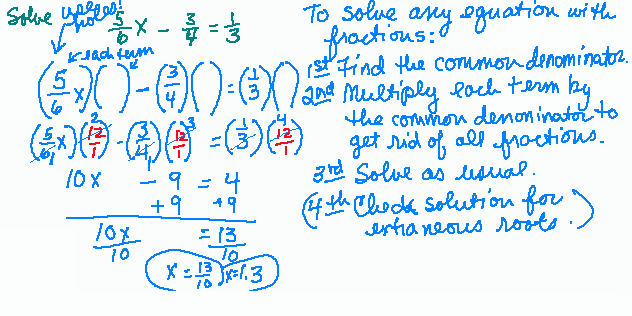 Solve 5/6 x - 3/4 = 1/3
each term
(5/6 x)( ) - (3/4)( ) = (1/3)( )
(5/6 x)(12/1) - (3/4)(12/1) = (1/3)(12/1)
2 3 4
1 1
10x - 9 = 4
+9 +9
10x = 13
10 10
x = 13/10 x=1.3
To solve any equation with
fractions:
1st Find the common denominator.
2nd Multiply each term by
the common denominator to
get rid of all fractions.
3rd Solve as usual.
(4th Check solution for
extraneous roots.)